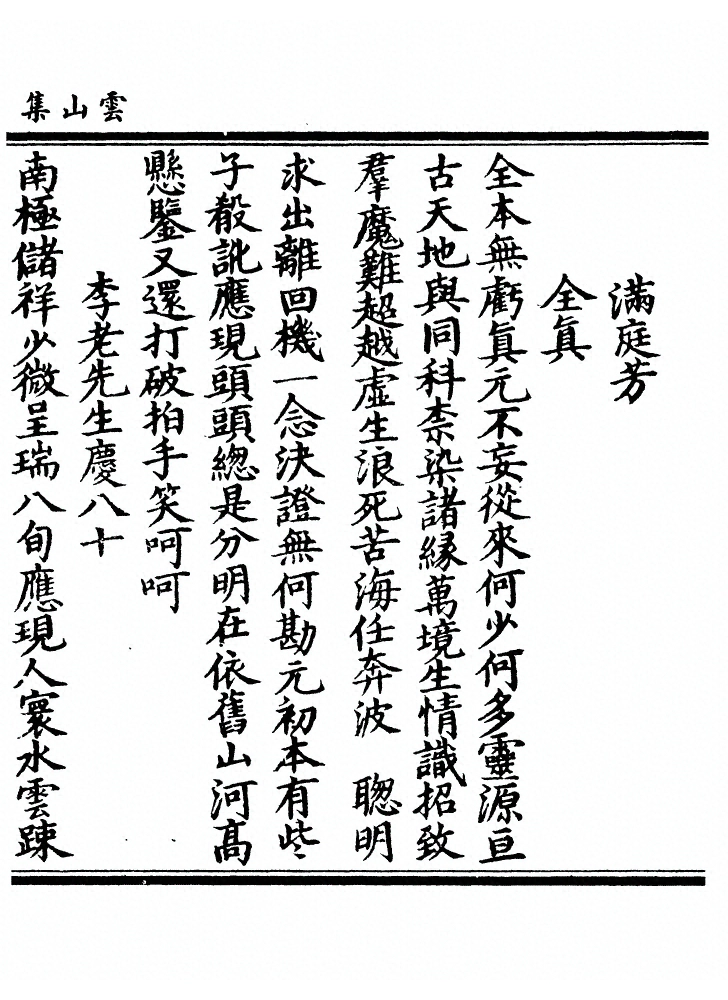 雲山集
滿庭芳
全眞
全本無虧眞元不妄從來何少何多靈源亘
古天地與同科柰染諸緣萬境生情識招致
羣魔難超越虛生浪死苦海任奔波　聰明
求出離回機一念決證無何勘元初本有些
子殽訛應現頭頭總是分明在依舊山河高
懸鑒又還打破拍手笑呵呵
李老先生慶八十
南極儲祥少微呈瑞八旬應現人寰水雲踈